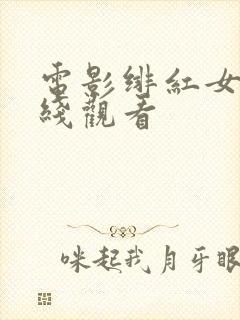 電影緋紅女
綫觀看
咪起我月牙眼